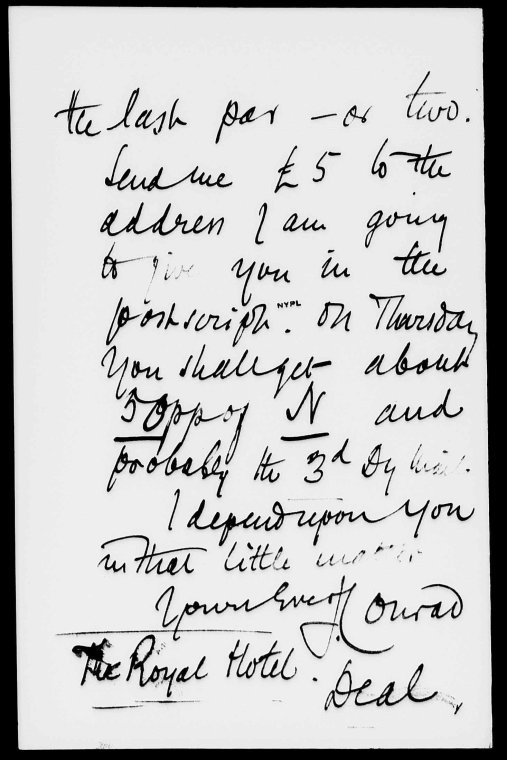 the last par – or two.
Send me £5 to the
address I am going
to give you in the
postscript. NYPL On Thursday
You shall get about
50 pp of N and
probably the 3d Dy Mail.
I depend upon You
in that little matter
Yours Ever J. Conrad
The Royal Hotel.
Deal.